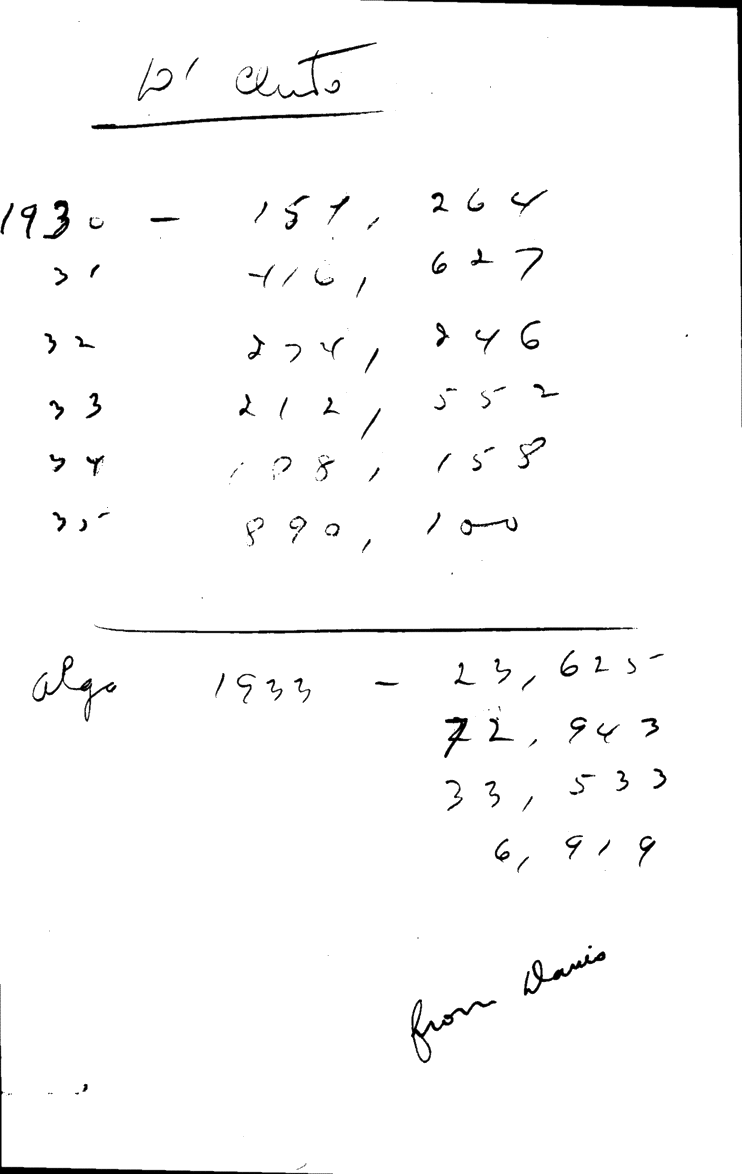 D' Cluto
1930 - 157, 264
31 416, 627
32 274, 246
33 212, 552
34 108, 158
35 890, 100
Algo 1933 - 23, 625
72, 943
33, 533
6, 919
from Davis